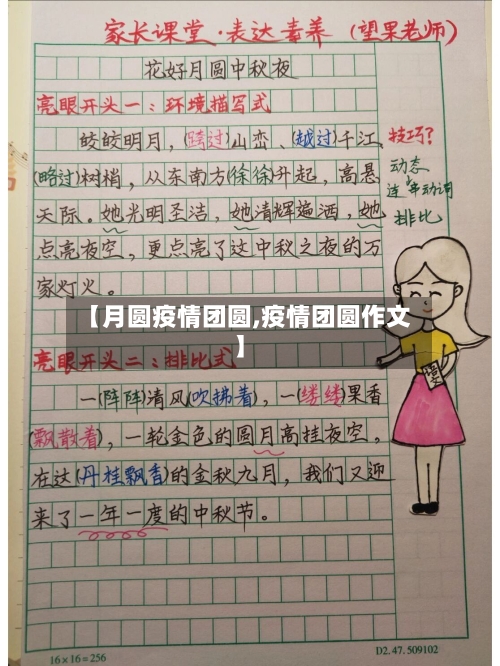 家长课堂·表达素养（望果老师）
花好月圆中秋夜
亮眼开头一：环境描写式
皎皎明月，(跨过)山峦、(越过)千江、
(略过)树梢，从东南方(徐徐)升起，高悬
天际。她光明圣洁，她清辉遍洒，她
点亮夜空，更点亮了这中秋之夜的万
家灯火。
技巧？
动态
连串动词
排比
【月圆疫情团圆,疫情团圆作文
】
亮眼开头二：排比式
一(阵阵)清风(吹拂着)，一(缕缕)果香
(飘散着)，一轮金色的圆月高挂夜空，
在这(丹桂飘香)的金秋九月，我们又迎
来了一年一度的中秋节。
16×16=256
D2.47.509102